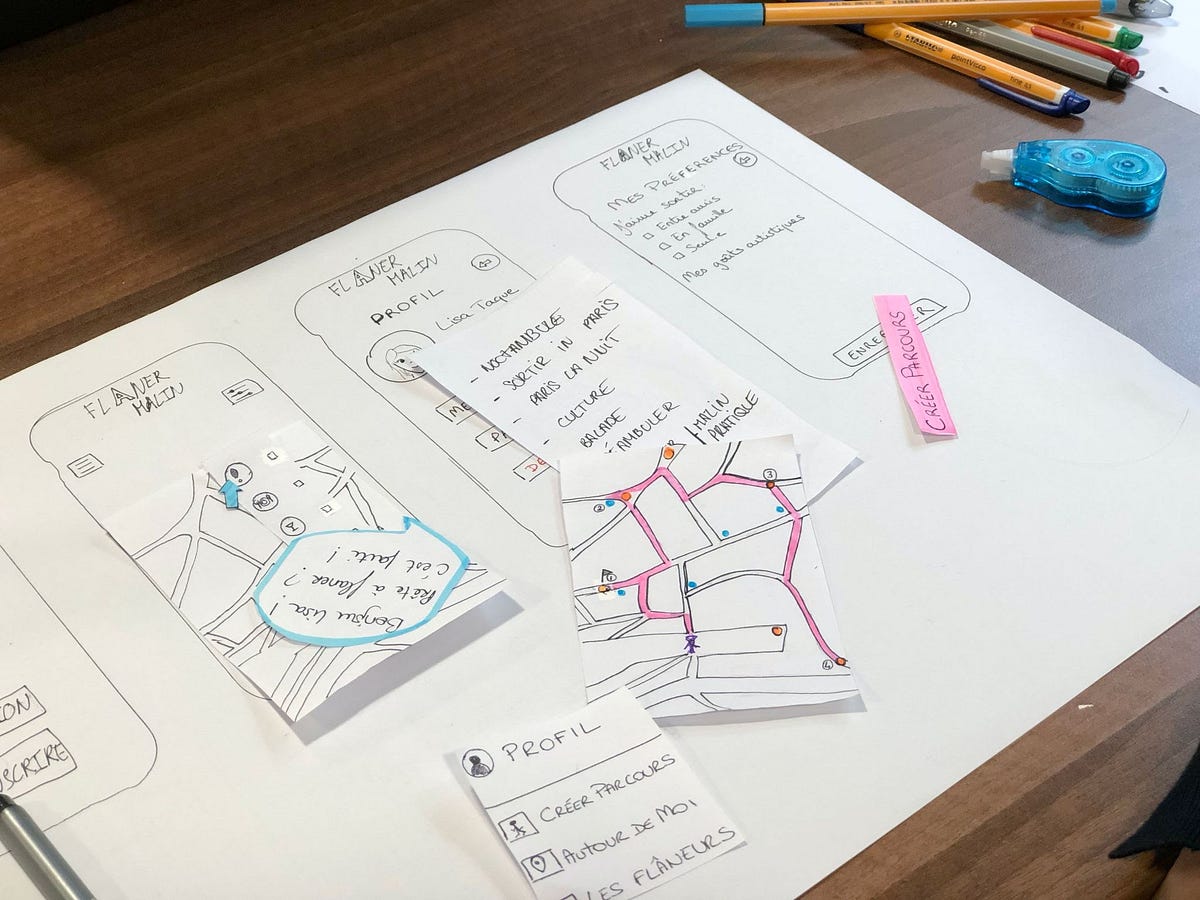 FLÂNER
MALIN
MES PRÉFÉRENCES
J'aime sortir:
Entre amis
En famille
Seule
Mes goûts artistiques
CRÉER PARCOURS
FLÂNER
MALIN
PROFIL
Lisa Taque
- NOCTAMBULE
- SORTIR IN PARIS
- PARIS LA NUIT
- CULTURE
BALADE
MALIN
PRATIQUE
FLÂNER
MALIN
Bonjour Lisa!
Prête à flaner?
C'est parti!
2
3
1
4
ION
SCRIRE
PROFIL
CRÉER PARCOURS
AUTOUR DE MOI
LES FLÂNEURS
STABILO